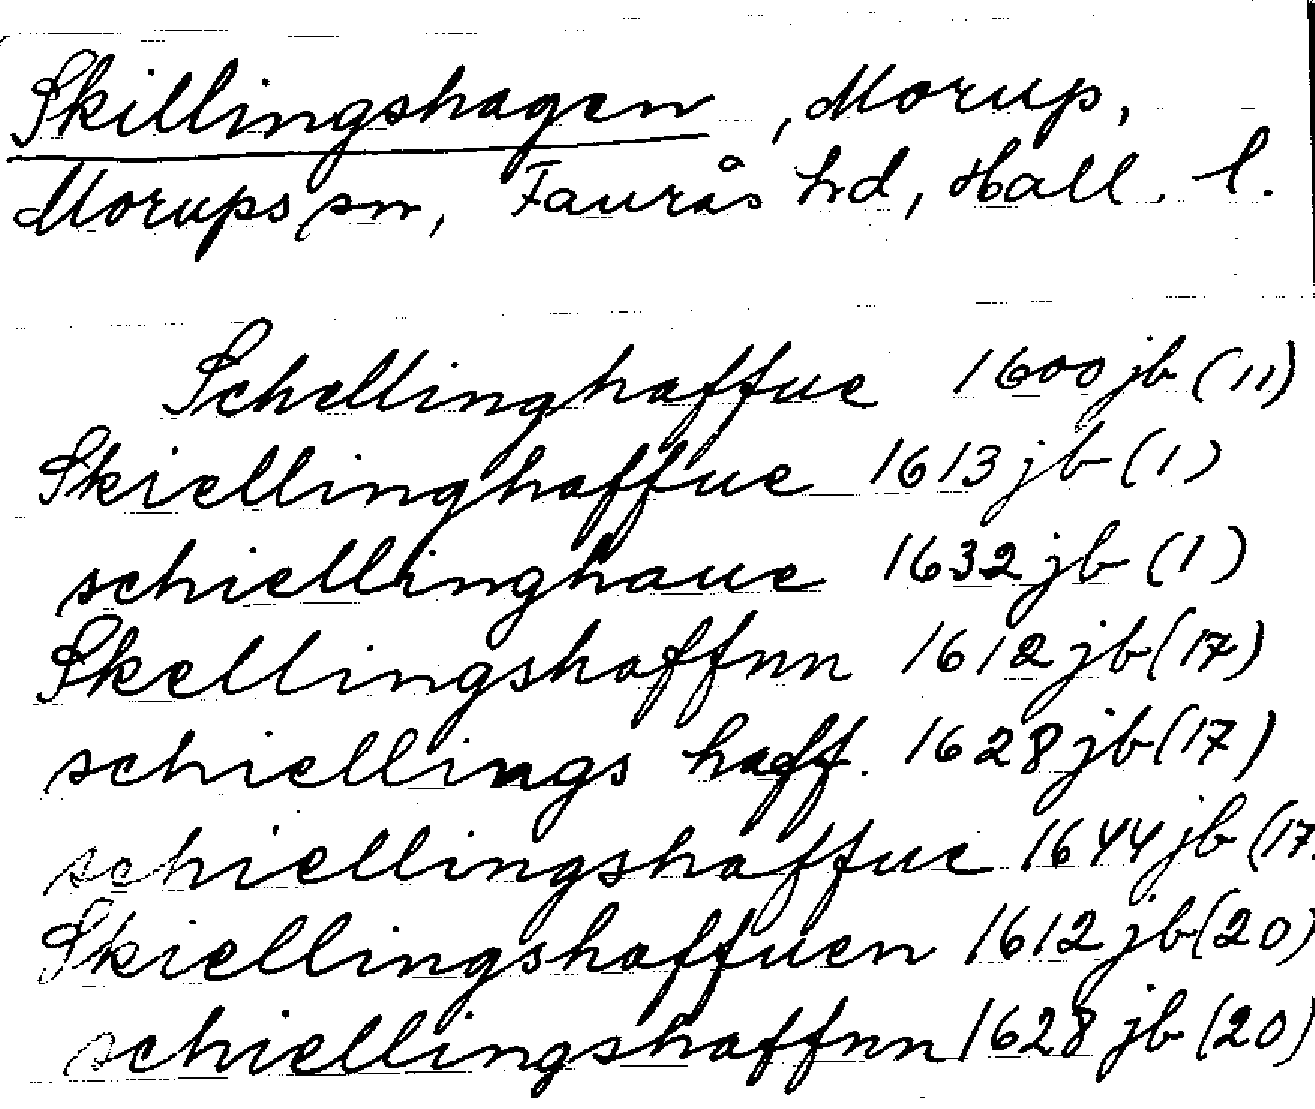 Skillingshagen, Morup,
Morups sn, Faurås hd, Hall. l.
Schellinghaffue 1600 jb (11)
Skiellinghaffue 1613 jb (1)
schiellinghaue 1632 jb (1)
Skellingshaffnn 1612 jb (17)
schiellings haff. 1628 jb (17)
schiellingshaffue 1644 jb (17
Skiellingshaffuen 1612 jb (20)
schiellingshaffnn 1628 jb (20)